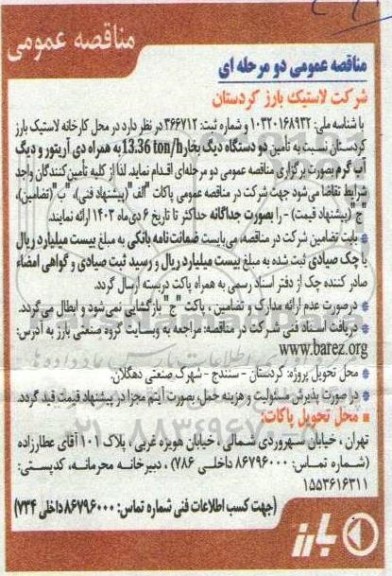 مناقصه عمومی
مناقصه عمومی دو مرحله ای
شرکت لاستیک بارز کردستان
با شناسه ملی: ۱۰۳۲۰۱۶۸۹۳۲ و شماره ثبت: ۳۶۶۷۱۲ در نظر دارد در محل کارخانه لاستیک بارز
کردستان نسبت به تأمین دو دستگاه دیگ بخار 13.36 ton/h به همراه دی آریتور و دیگ
آب گرم بصورت برگزاری مناقصه عمومی دو مرحله‌ای اقدام نماید. لذا از کلیه تأمین‌کنندگان واجد
شرایط تقاضا می شود جهت شرکت در مناقصه عمومی پاکات "الف" (پیشنهاد فنی)، "ب" (تضامین)،
"ج" (پیشنهاد قیمت) - را بصورت جداگانه حداکثر تا تاریخ ۶ دی‌ماه ۱۴۰۳ ارائه نمایند.
بابت تضامین شرکت در مناقصه، می‌بایست ضمانت‌نامه بانکی به مبلغ بیست میلیارد ریال
یا چک صیادی ثبت شده به مبلغ بیست میلیارد ریال و رسید ثبت صیادی و گواهی امضاء
صادر کننده چک از دفتر اسناد رسمی به همراه پاکت دربسته ارسال گردد.
در صورت عدم ارائه مدارک و تضامین، پاکت "ج" بازگشایی نمی‌شود و ابطال می‌گردد.
دریافت اسناد فنی شرکت در مناقصه: مراجعه به وبسایت گروه صنعتی بارز به آدرس:
www.barez.org
محل تحویل پروژه: کردستان - سنندج - شهرک صنعتی دهگلان.
در صورت پذیرش مسئولیت و هزینه حمل بصورت آیتم مجزا در پیشنهاد قیمت قید گردد.
محل تحویل پاکات:
تهران، خیابان سهروردی شمالی، خیابان هویزه غربی، پلاک ۱۰۱ آقای عطارزاده
(شماره تماس: ۸۶۷۹۶۰۰۰ داخلی ۷۸۶)، دبیرخانه محرمانه، کدپستی:
۱۵۵۳۶۱۶۳۱۱
(جهت کسب اطلاعات فنی شماره تماس: ۸۶۷۹۶۰۰۰ داخلی ۷۳۴)
بارز